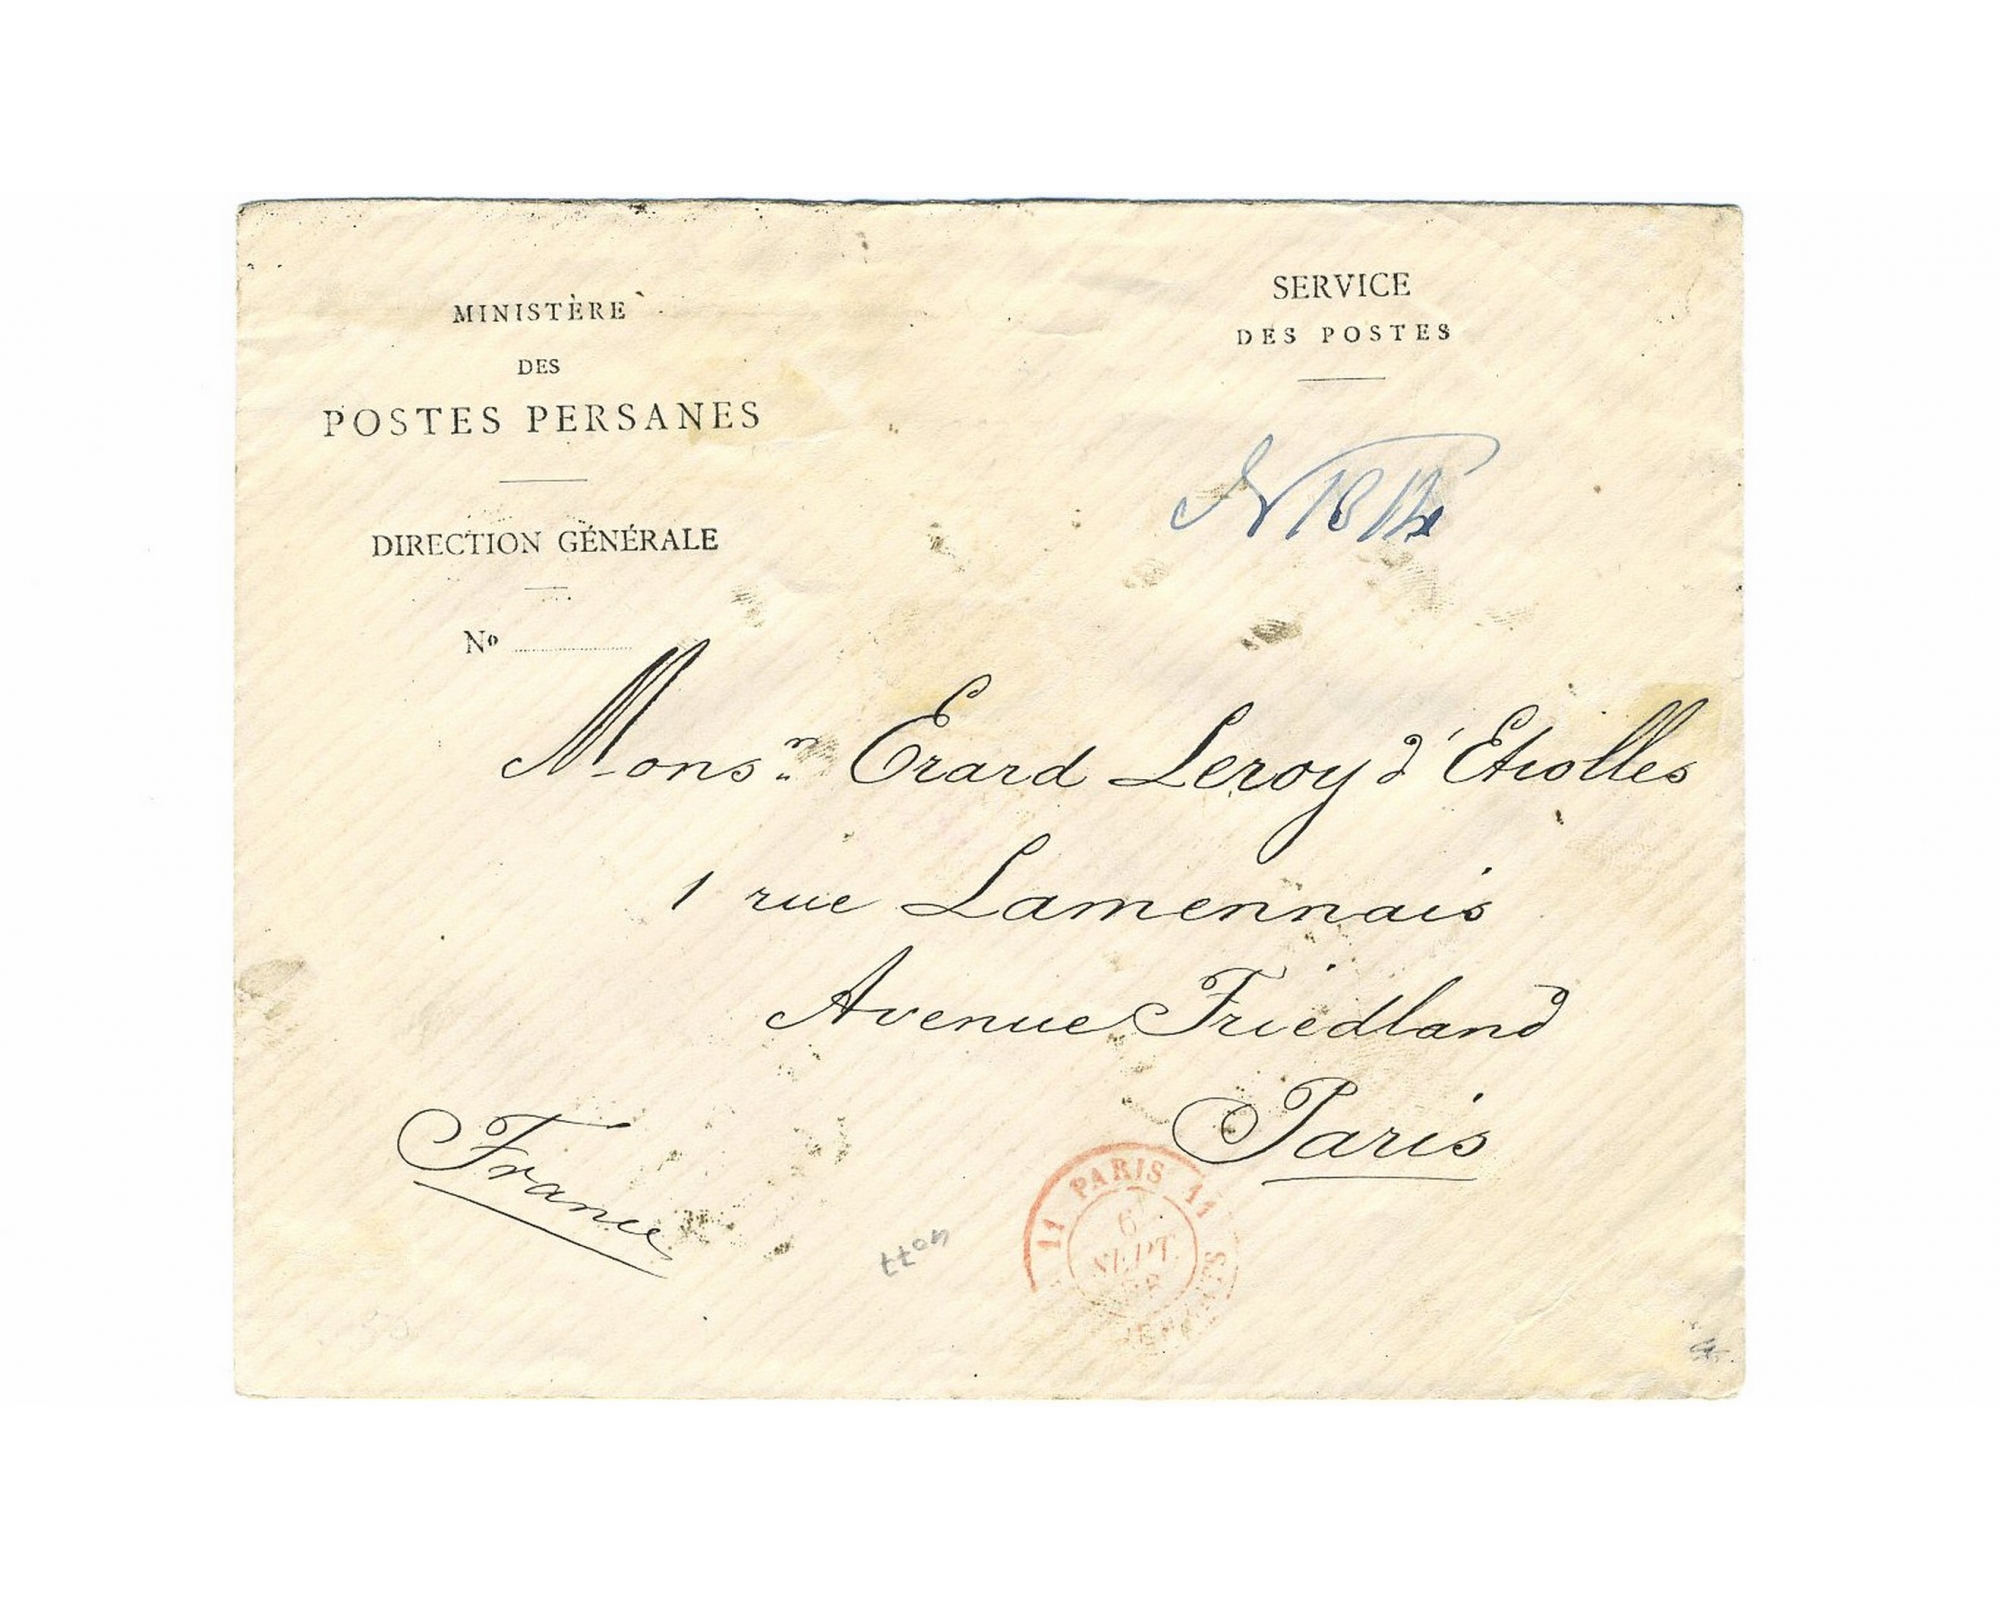 MINISTÈRE
DES
POSTES PERSANES
DIRECTION GÉNÉRALE
Nº
SERVICE
DES POSTES
Monsr Erard Leroy d'Etiolles
1 rue Lamennais
Avenue Friedland
Paris
France
11 PARIS 11
6
SEPT.